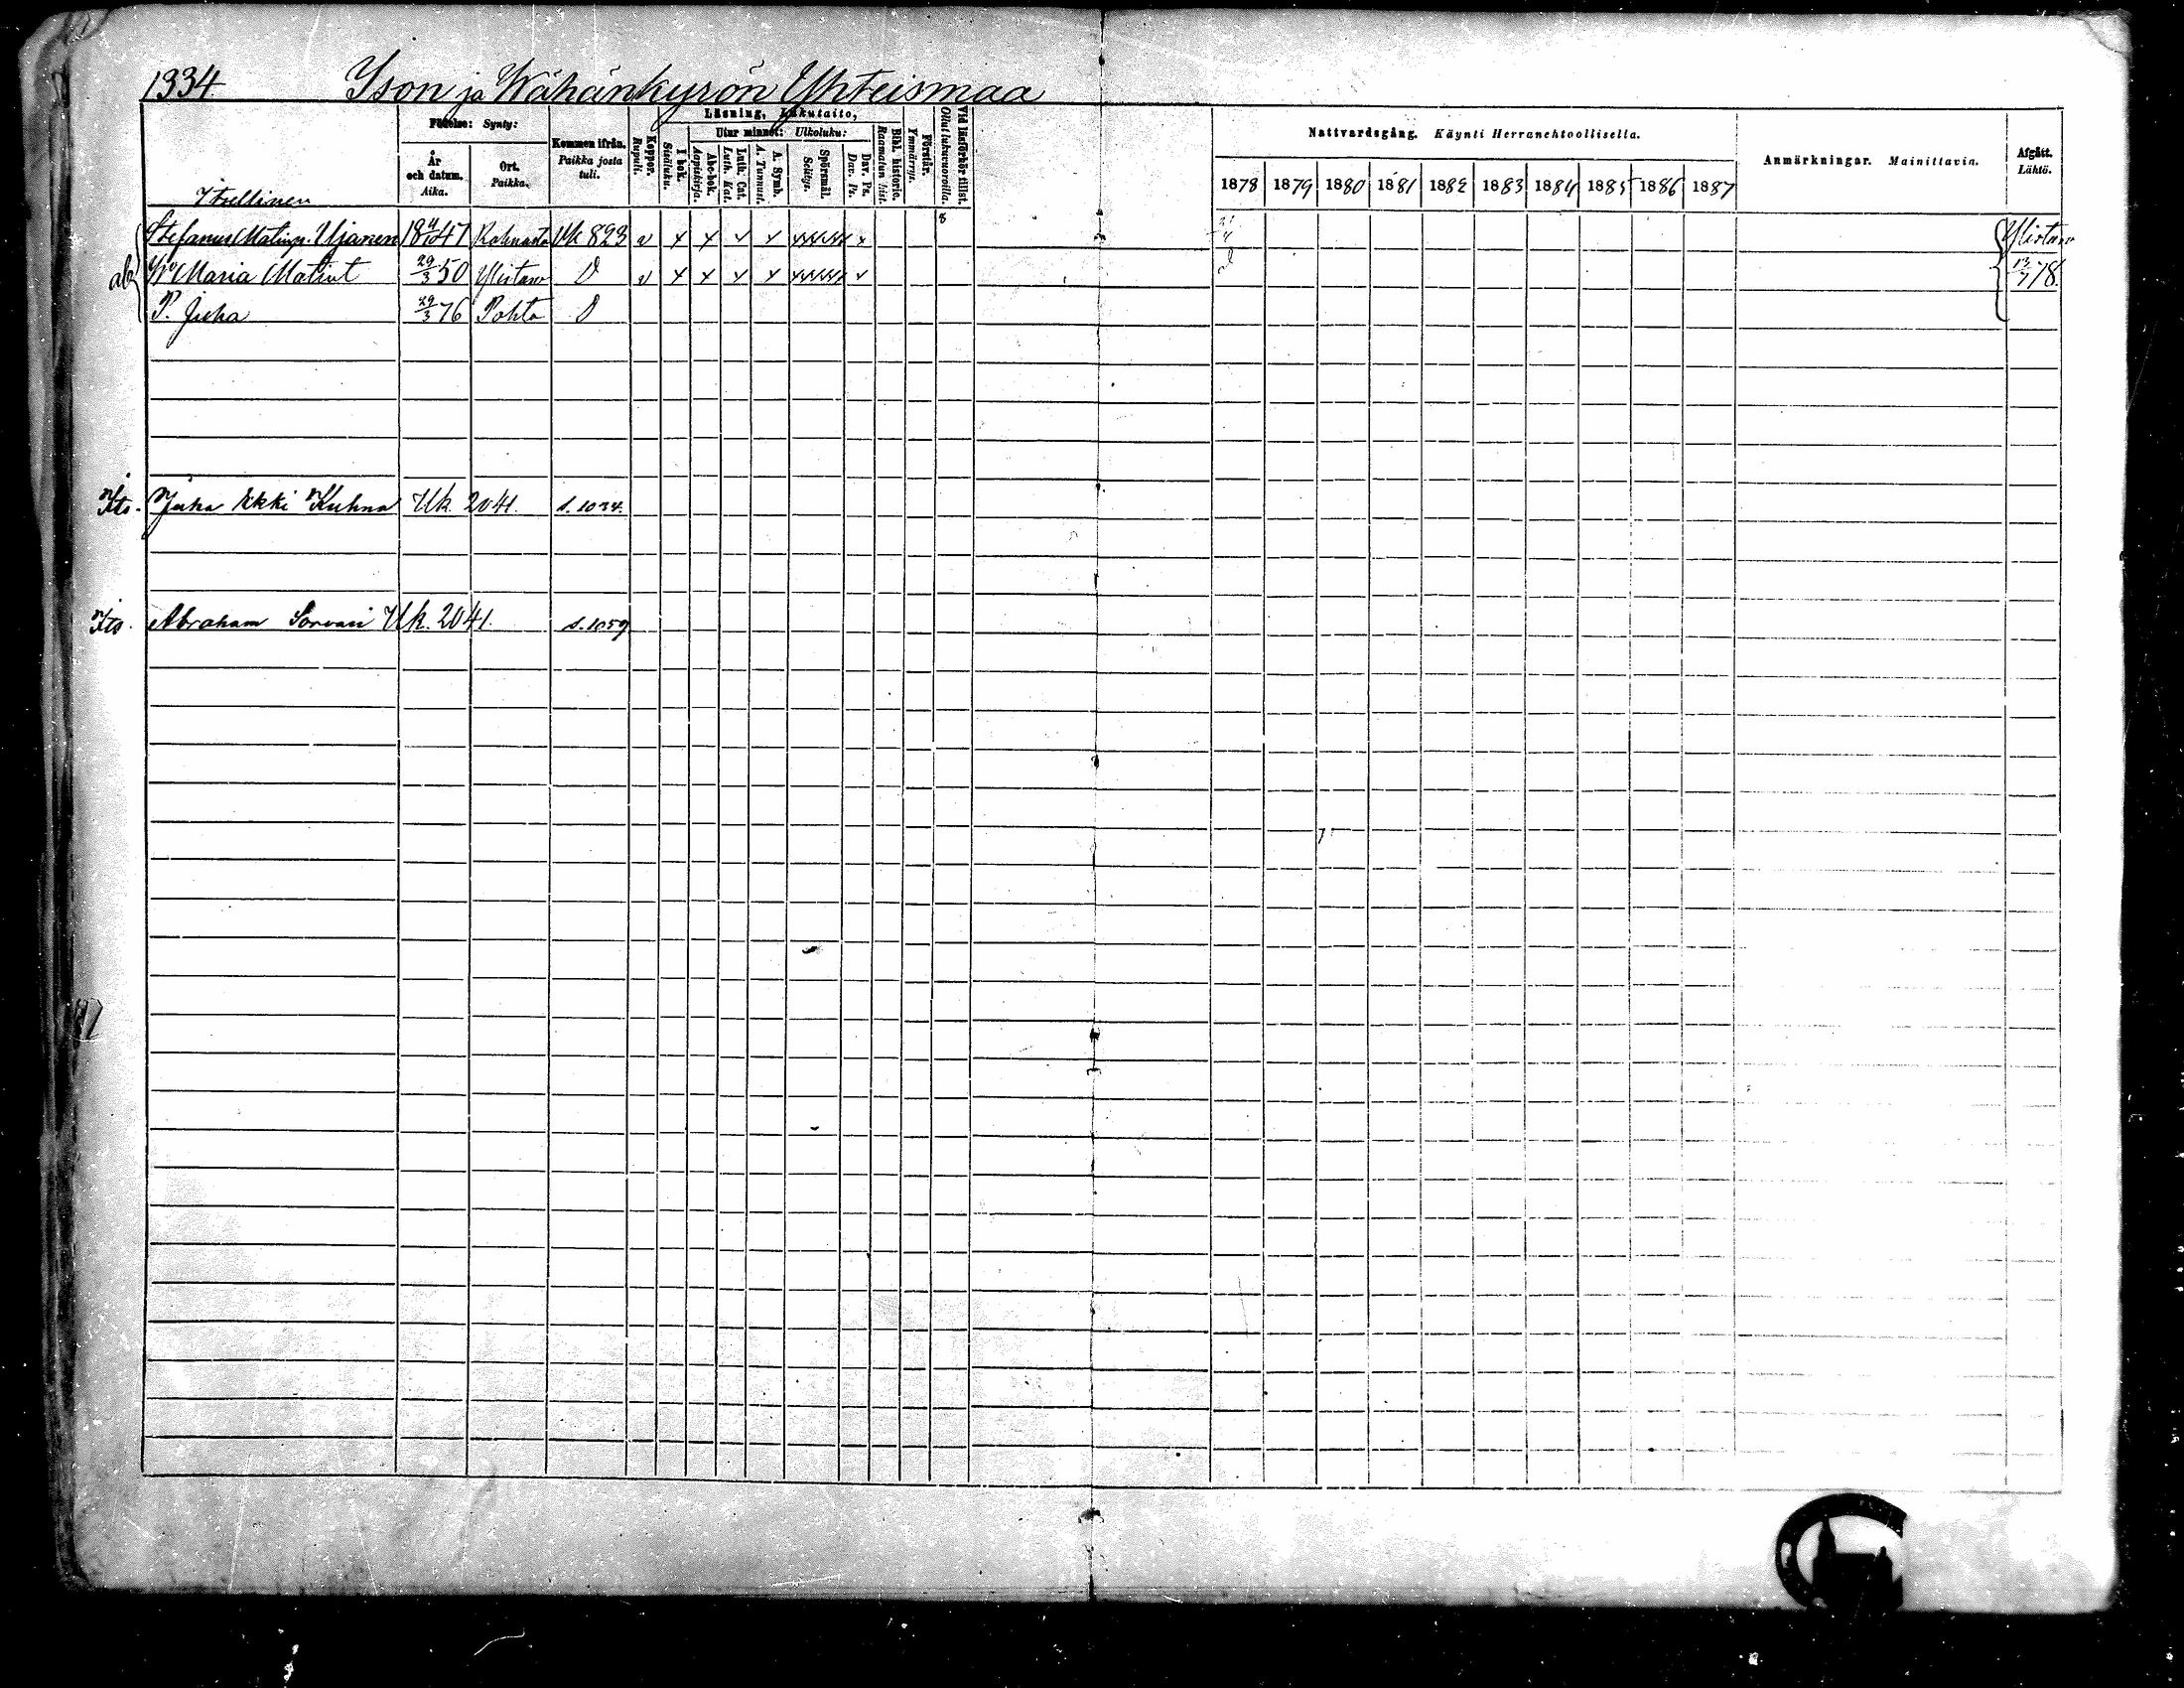 1334 Yson ja Wähänkyrön Yhteismaa
Födelse: Synty:
År och datum. Aika.
Ort. Paikka.
Kommen ifrån. Paikka josta tuli.
Koppor. Rupuli.
Läsning, Lukutaito,
I bok. Sisäluku.
Utur minnet: Ulkoluku:
Abc-bok. Aapiskirja.
Luth. Cat. Luth. Kat.
A. Symb. A. Tunnust.
Spörsmål. Selitys.
Dav. Ps. Dav. Ps.
Bibl. historie. Raamatun hist.
Förstår. Ymmärrys.
Vid läsförhör tillst. Ollut lukuvuoroilla.
Nattvardsgång. Käynti Herranehtoollisella.
1878 1879 1880 1881 1882 1883 1884 1885 1886 1887
Anmärkningar. Mainittavia.
Afgått. Lähtö.
Itsellinen
8
Stefanus Matinp. Ujanen 18 47 Uk 823 v x x x x x Ylistaro
Maria Matint 29/3 50 Ylistaro D v x x x x x 78.
P. Juha 29/3 76 Pohto D
Its. Juha Erkki Kuhna Uk. 2041. s. 1034.
Its. Abraham Sorvari Uk. 2041. s. 1059